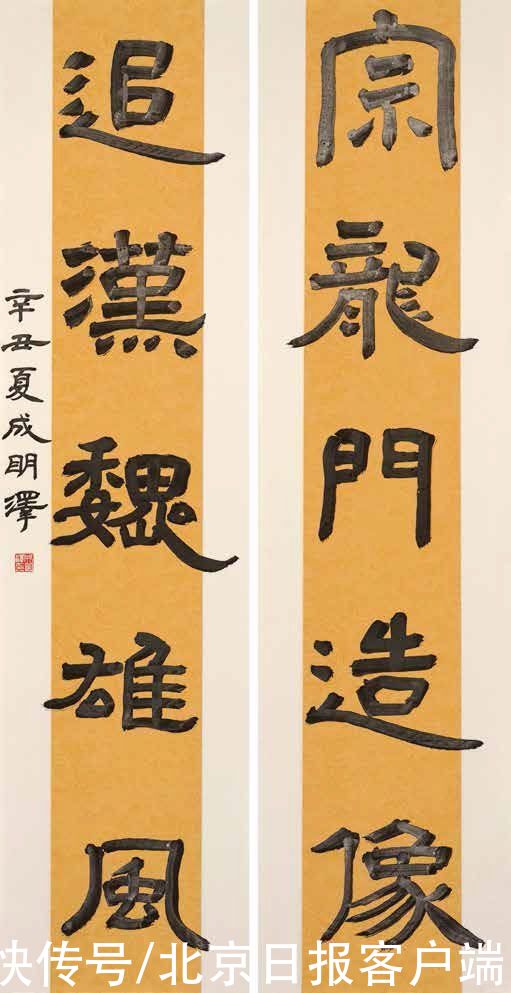 宗龍門造像
追漢魏雄風
辛丑夏成明澤
快传号/北京日报客户端